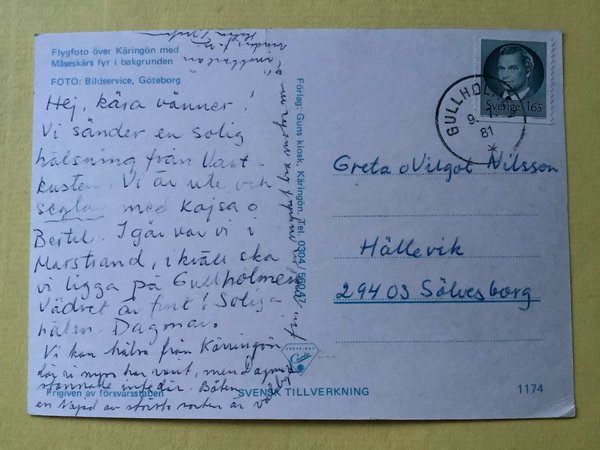 Flygfoto över Käringön med
Måseskärs fyr i bakgrunden
FOTO: Bildservice, Göteborg
Hej, kära vänner!
Vi sänder en solig
hälsning från Väst
kusten. Vi är ute och
segla med Kajsa o
Bertil. I går var vi i
Marstrand, i kväll ska
vi ligga på Gullholmen
Vädret är fint! Soliga
hälsn. Dagmar.
Vi kan hälsa från Käringön
där vi nyss har varit, men Dagmar
stannade inte där. Båten
en av största sorten är
Frigiven av försvarsstaben
SVENSK TILLVERKNING
1174
Förlag: Guns kiosk, Käringön. Tel. 0304/560 47
GULLHOLMEN
81
Sverige 165
Greta o Vilgot Nilsson
Hällevik
294 03 Sölvesborg